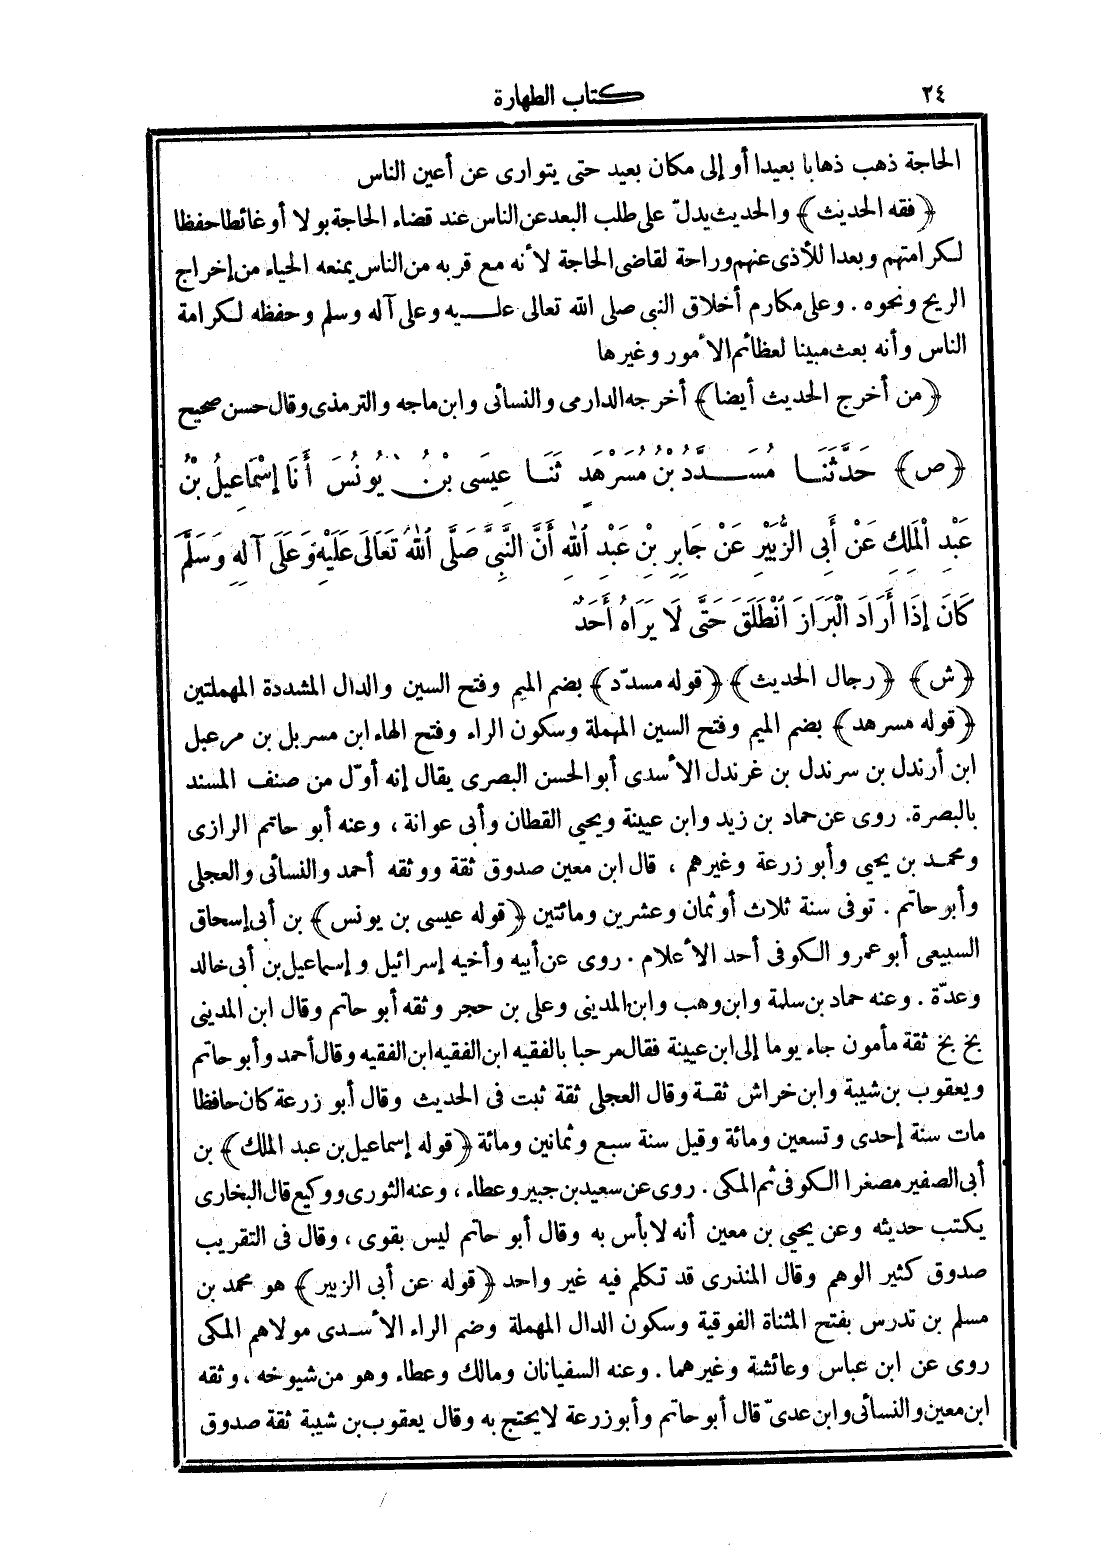 ٢٤
كتاب الطهارة
الحاجة ذهب ذهابا بعيدا أو إلى مكان بعيد حتى يتوارى عن أعين الناس
﴿فقه الحديث﴾ والحديث يدلّ على طلب البعد عن الناس عند قضاء الحاجة بولا أو غائطا حفظا
لكرامتهم وبعدا للأذى عنهم وراحة لقاضى الحاجة لأنه مع قربه من الناس يمنعه الحياء من إخراج
الريح ونحوه . وعلى مكارم أخلاق النبى صلى الله تعالى عليه وعلى آله وسلم وحفظه لكرامة
الناس وأنه بعث مبينا لعظائم الأمور وغيرها
﴿من أخرج الحديث أيضا﴾ أخرجه الدارمى والنسائى وابن ماجه والترمذى وقال حسن صحيح
﴿ص﴾ حَدَّثَنَا مُسَدَّدُ بْنُ مُسَرْهَدٍ ثَنَا عِيسَى بْنُ يُونُسَ أَنَا إِسْمَاعِيلُ بْنُ
عَبْدِ الْمَلِكِ عَنْ أَبِى الزُّبَيْرِ عَنْ جَابِرِ بْنِ عَبْدِ اللهِ أَنَّ النَّبِىَّ صَلَّى اللهُ تَعَالَى عَلَيْهِ وَعَلَى آلِهِ وَسَلَّمَ
كَانَ إِذَا أَرَادَ الْبَرَازَ انْطَلَقَ حَتَّى لَا يَرَاهُ أَحَدٌ
﴿ش﴾ ﴿رجال الحديث﴾ ﴿قوله مسدّد﴾ بضم الميم وفتح السين والدال المشددة المهملتين
﴿قوله مسرهد﴾ بضم الميم وفتح السين المهملة وسكون الراء وفتح الهاء ابن مسربل بن مرعبل
ابن أرندل بن سرندل بن غرندل الأسدى أبو الحسن البصرى يقال إنه أوّل من صنف المسند
بالبصرة. روى عن حماد بن زيد وابن عيينة ويحيى القطان وأبى عوانة ، وعنه أبو حاتم الرازى
ومحمد بن يحيى وأبو زرعة وغيرهم ، قال ابن معين صدوق ثقة ووثقه أحمد والنسائى والعجلى
وأبو حاتم . توفى سنة ثلاث أو ثمان وعشرين ومائتين ﴿قوله عيسى بن يونس﴾ بن أبى إسحاق
السبيعى أبو عمرو الكوفى أحد الأعلام . روى عن أبيه وأخيه إسرائيل وإسماعيل بن أبى خالد
وعدّة . وعنه حماد بن سلمة وابن وهب وابن المدينى وعلى بن حجر وثقه أبو حاتم وقال ابن المدينى
بخ بخ ثقة مأمون جاء يوما إلى ابن عيينة فقال مرحبا بالفقيه ابن الفقيه ابن الفقيه وقال أحمد وأبو حاتم
ويعقوب بن شيبة وابن خراش ثقة وقال العجلى ثقة ثبت فى الحديث وقال أبو زرعة كان حافظا
مات سنة إحدى وتسعين ومائة وقيل سنة سبع وثمانين ومائة ﴿قوله إسماعيل بن عبد الملك﴾ بن
أبى الصفير مصغرا الكوفى ثم المكى . روى عن سعيد بن جبير وعطاء ، وعنه الثورى ووكيع قال البخارى
يكتب حديثه وعن يحيى بن معين أنه لا بأس به وقال أبو حاتم ليس بقوى ، وقال فى التقريب
صدوق كثير الوهم وقال المنذرى قد تكلم فيه غير واحد ﴿قوله عن أبى الزبير﴾ هو محمد بن
مسلم بن تدرس بفتح المثناة الفوقية وسكون الدال المهملة وضم الراء الأسدى مولاهم المكى
روى عن ابن عباس وعائشة وغيرهما . وعنه السفيانان ومالك وعطاء وهو من شيوخه ، وثقه
ابن معين والنسائى وابن عدىّ قال أبو حاتم وأبو زرعة لا يحتج به وقال يعقوب بن شيبة ثقة صدوق